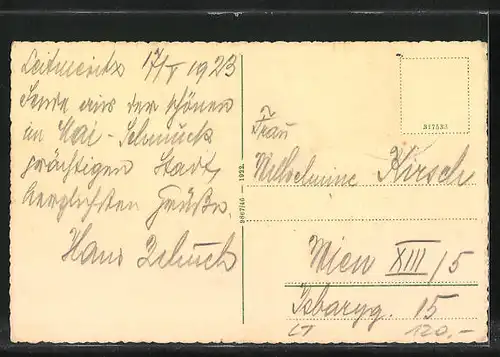 Leitmeritz 17/V 1923
Sende aus der schönen
im Mai-Schmuck
prächtigen Stadt,
herzlichsten Grüße.
Hans
2867/46 — 1922.
317533
Frau
Wilhelmine Kirsch
Wien XIII/5
15
LT 120.-